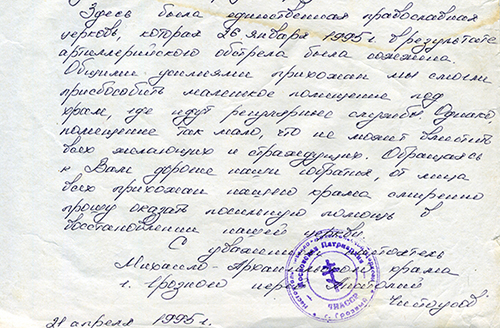 Здесь была единственная православная
церковь, которая 26 января 1995 г в результате
артиллерийского обстрела была сожжена.
Общими усилиями прихожан мы смогли
приспособить маленькое помещение под
храм, где идут регулярные службы. Однако
помещение так мало, что не может вместить
всех желающих и страждущих. Обращаясь
к Вам дорогие наши собратья, от лица
всех прихожан нашего храма смиренно
прошу оказать посильную помощь в
восстановлении нашей церкви.
С уважением настоятель
Михаило-Архангельского храма
г. Грозного иерей Анатолий
Чистоусов.
21 апреля 1995 г.
Московская Патриархия
г. Грозный